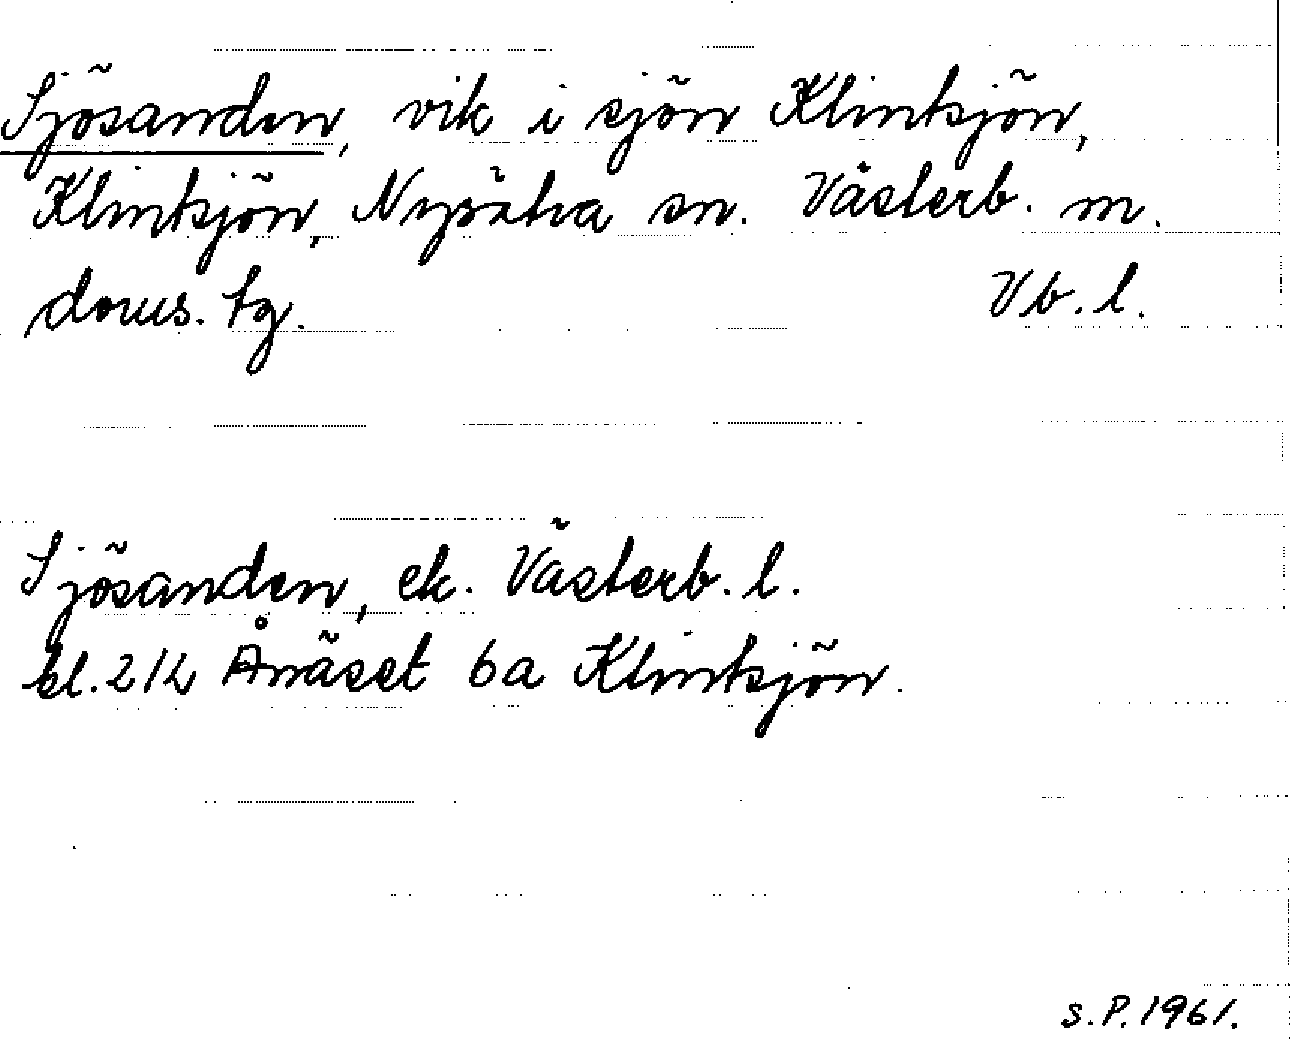 Sjösanden, vik i sjön Klintsjön,
Klintsjön, Nysätra sn. Västerb. m.
doms. tg. Vb. l.
Sjösanden, ek. Västerb. l.
bl. 21k Ånäset 6a Klintsjön.
S.P. 1961.